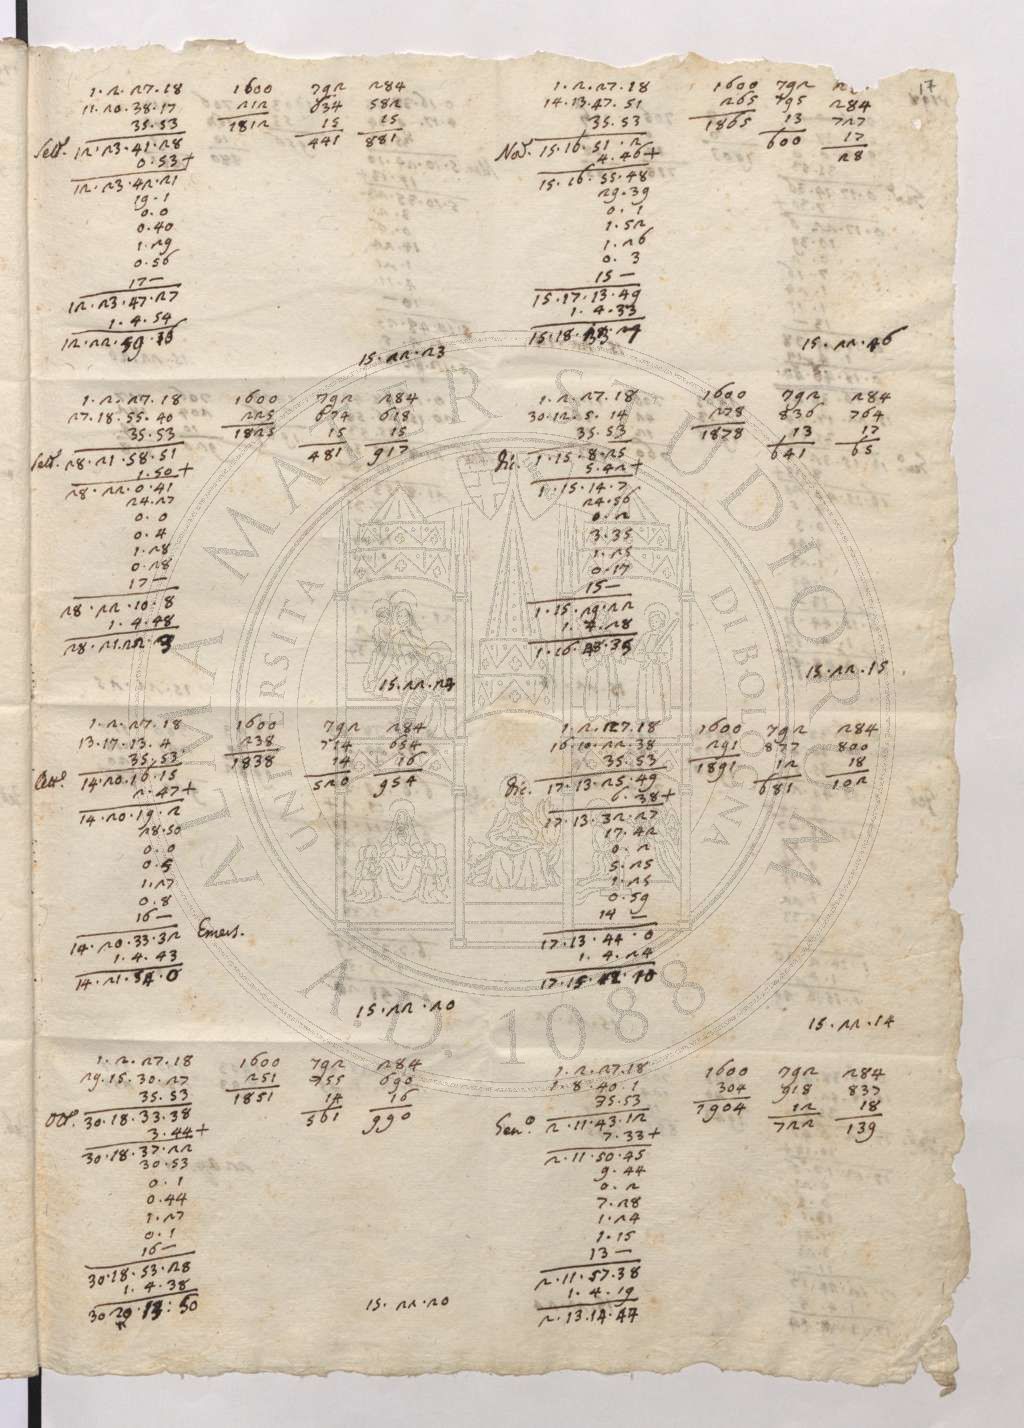 17
1.2.27.18 1600 792 284
11.20.38.17 212 634 582
35.53 1812 15 15
Sett. 12.23.41.28 441 881
0.53+
12.23.42.21
19.1
0.0
0.40
1.29
0.56
17—
12.23.47.27
1.4.54
12.22.59
15.22.23
1.2.27.18 1600 792 284
27.18.55.40 225 674 618
35.53 1825 15 15
Sett. 28.21.58.51 481 917
1.50+
28.22.0.41
24.27
0.0
0.4
1.28
0.28
17—
28.22.10.8
1.4.48
28.21.22.3
15.22.24
1.2.27.18 1600 792 284
13.17.13.4 238 714 654
35.53 1838 14 16
Ott.e 14.20.16.15 520 954
2.47+
14.20.19.2
28.50
0.0
0.5
1.27
0.8
16—
14.20.33.32 Emers.
1.4.43
14.21.54.0
15.22.20
1.2.27.18 1600 792 284
29.15.30.27 251 755 690
35.53 1851 14 16
Ott. 30.18.33.38 561 990
3.44+
30.18.37.22
30.53
0.1
0.44
1.27
0.1
16—
30.18.53.28
1.4.38
30 29.13:50
15.22.20
1.2.27.18 1600 792
14.13.47.51 265 795 284
35.53 1865 13 727
Nov. 15.16.51.2 600 17
4.46+ 28
15.16.55.48
29.39
0.1
1.52
1.26
0.3
15—
15.17.13.49
1.4.33
15.18
15.22.46
1.2.27.18 1600 792 284
30.12.5.14 278 836 764
35.53 1878 13 17
Dic. 1.15.8.25 641 65
5.42+
1.15.14.7
24.56
0.2
3.35
1.25
0.17
15—
1.15.29.22
1.4.28
1.16.43.35
15.22.15
1.2.27.18 1600 792 284
16.10.22.38 291 877 800
35.53 1891 12 18
Dic. 17.13.25.49 681 102
6.38+
17.13.32.27
17.42
0.2
5.25
1.25
0.59
14—
17.13.44.0
1.4.24
17.15.42.10
15.22.14
1.2.27.18 1600 792 284
1.8.40.1 304 918 837
35.53 1904 12 18
Gen.o 2.11.43.12 722 139
7.33+
2.11.50.45
9.44
0.2
7.28
1.24
1.15
13—
2.11.57.38
1.4.19
2.13.14.47
ALMA MATER STUDIORUM
UNIVERSITÀ DI BOLOGNA
A.D. 1088